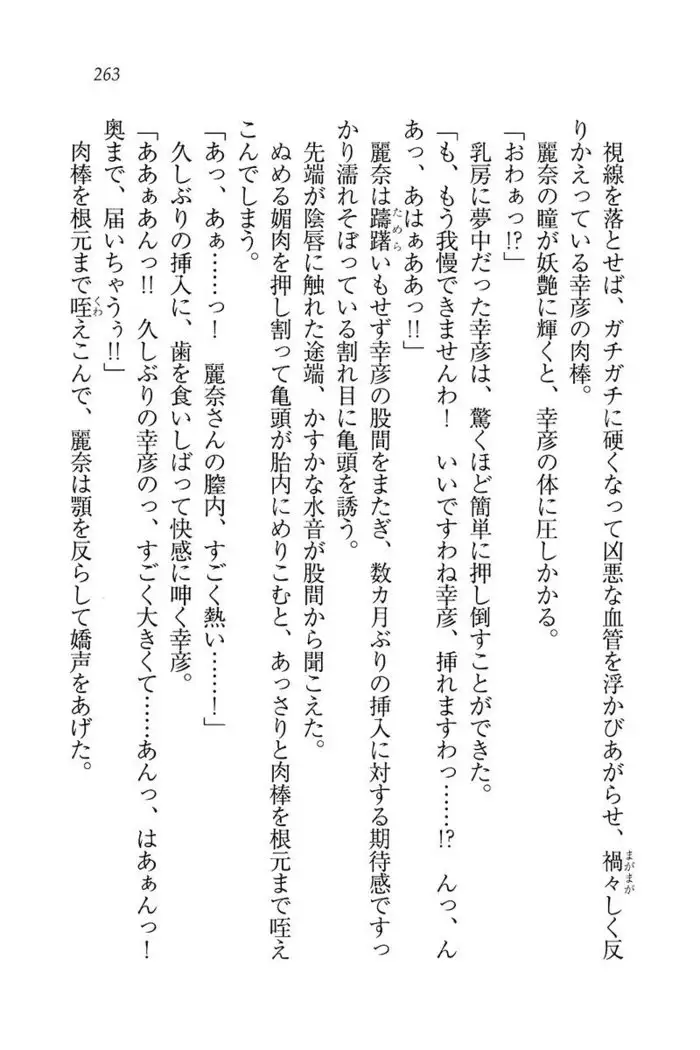 263
視線を落とせば、ガチガチに硬くなって凶悪な血管を浮かびあがらせ、禍々しく反
まがまが
りかえっている幸彦の肉棒。
麗奈の瞳が妖艶に輝くと、幸彦の体に圧しかかる。
「おわぁっ!?」
乳房に夢中だった幸彦は、驚くほど簡単に押し倒すことができた。
「も、もう我慢できませんわ！　いいですわね幸彦、挿れますわっ……!?　んっ、ん
あっ、あはぁああっ!!」
麗奈は躊躇いもせず幸彦の股間をまたぎ、数カ月ぶりの挿入に対する期待感ですっ
ためら
かり濡れそぼっている割れ目に亀頭を誘う。
先端が陰唇に触れた途端、かすかな水音が股間から聞こえた。
ぬめる媚肉を押し割って亀頭が胎内にめりこむと、あっさりと肉棒を根元まで咥え
こんでしまう。
「あっ、あぁ……っ！　麗奈さんの膣内、すごく熱い……！」
久しぶりの挿入に、歯を食いしばって快感に呻く幸彦。
「ああぁあんっ!!　久しぶりの幸彦のっ、すごく大きくて……あんっ、はあぁんっ！
奥まで、届いちゃうぅ!!」
肉棒を根元まで咥えこんで、麗奈は顎を反らして嬌声をあげた。
くわ